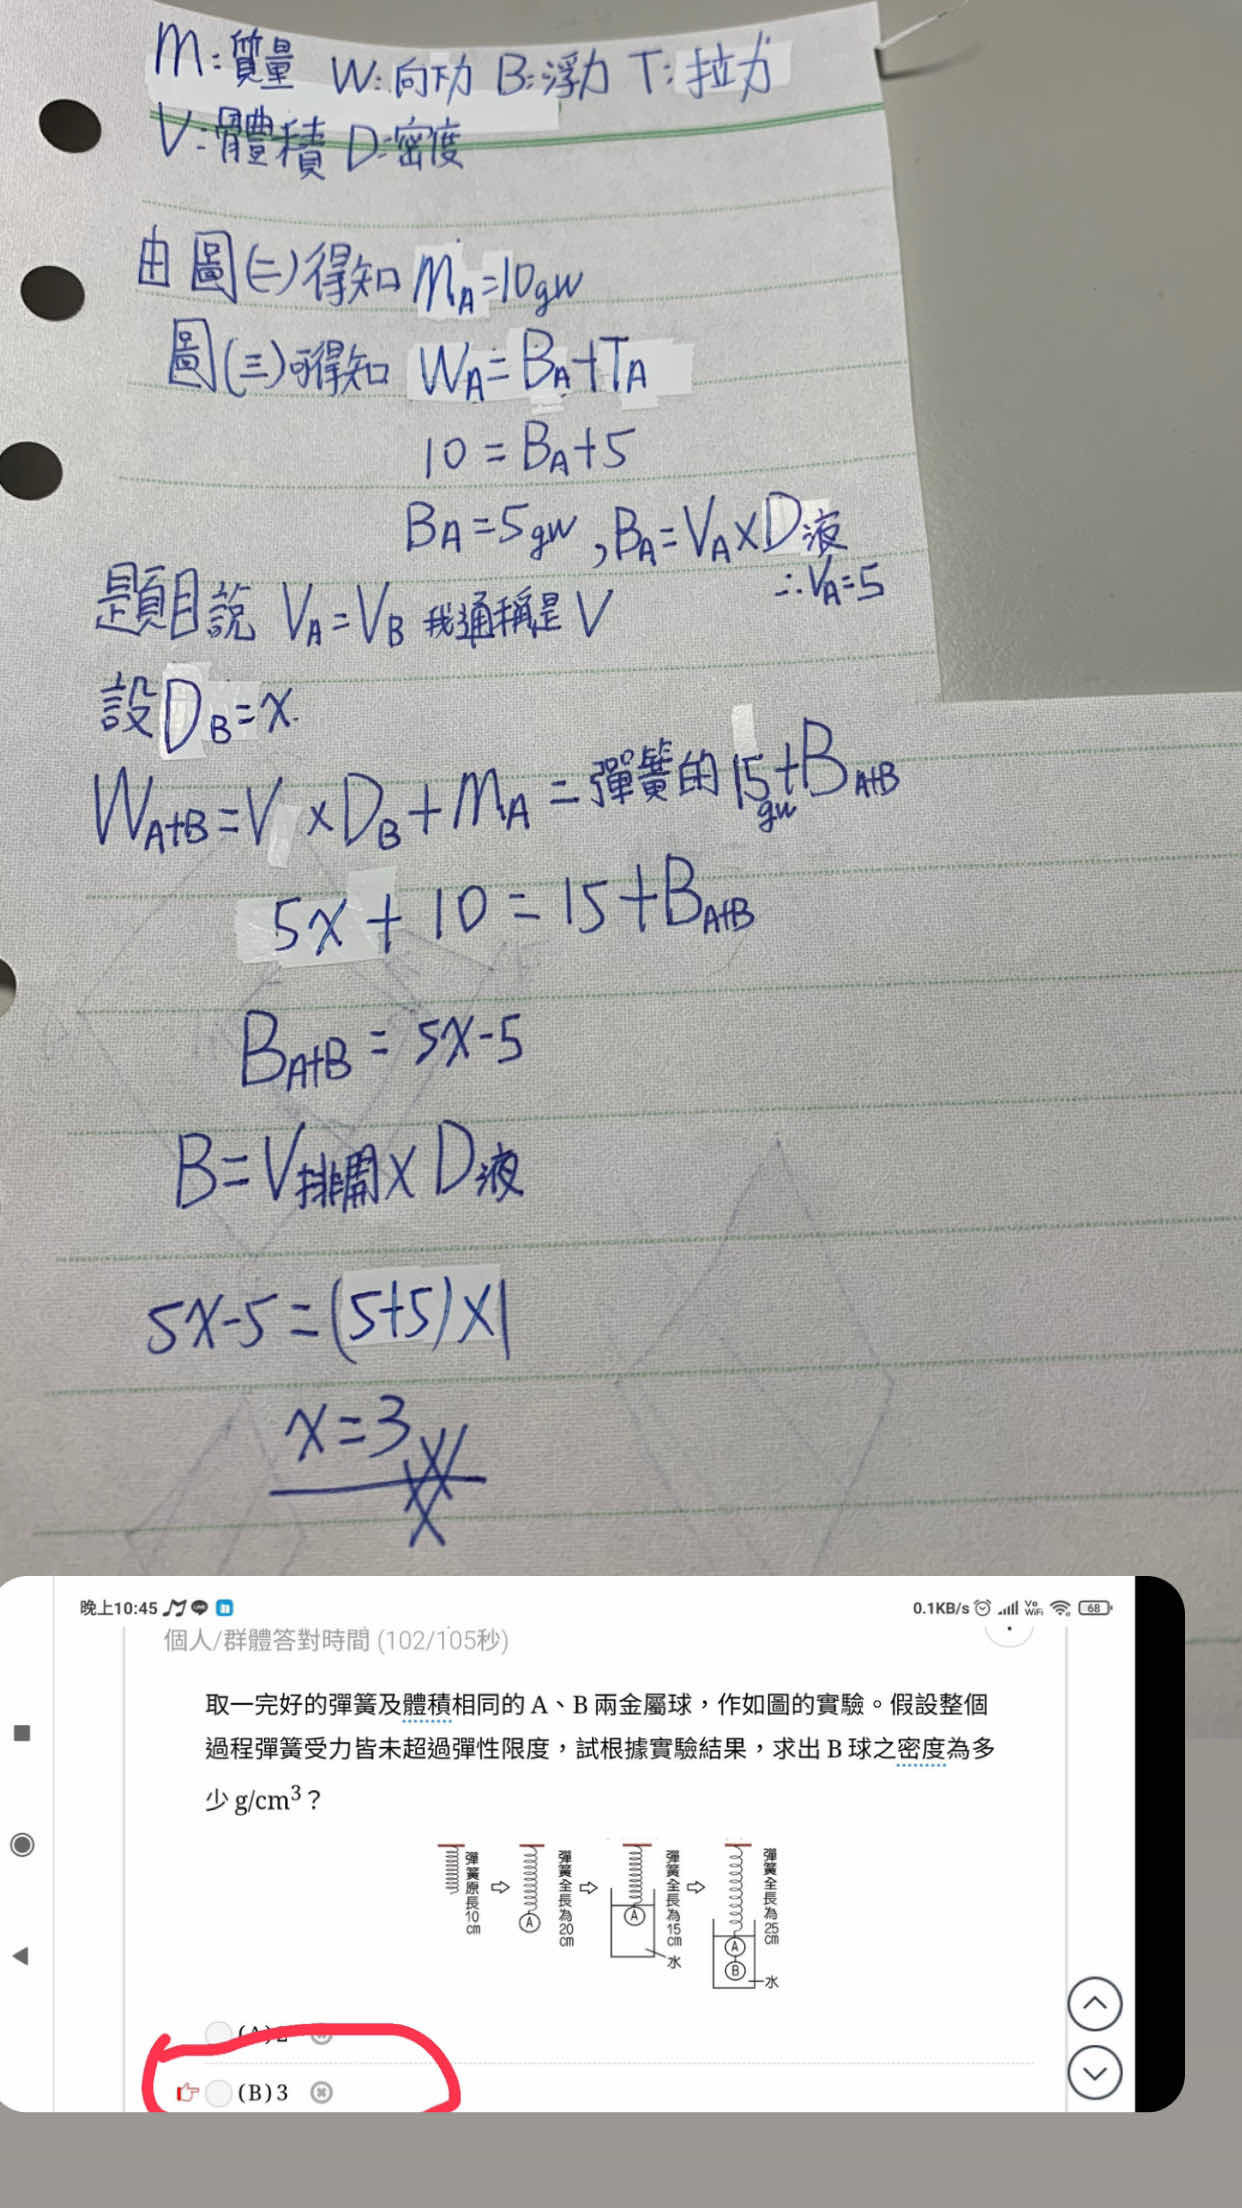 M:質量 W:向下力 B:浮力 T:拉力
V:體積 D:密度
由圖(二)得知 MA=10gw
圖(三)可得知 WA=BA+TA
10=BA+5
BA=5gw,BA=VA×D液
∴VA=5
題目說 VA=VB 我通稱是V
設DB=x
WA+B=V×DB+MA=彈簧的15gw+BA+B
5x+10=15+BA+B
BA+B=5x-5
B=V排開×D液
5x-5=(5+5)×1
x=3
晚上10:45
0.1KB/s
Vo WiFi
68
個人/群體答對時間 (102/105秒)
取一完好的彈簧及體積相同的 A、B 兩金屬球,作如圖的實驗。假設整個
過程彈簧受力皆未超過彈性限度,試根據實驗結果,求出 B 球之密度為多
少 g/cm³?
彈簧原長10cm
A
彈簧全長為20cm
A
彈簧全長為15cm
水
A
B
彈簧全長為25cm
水
(A)2
(B)3